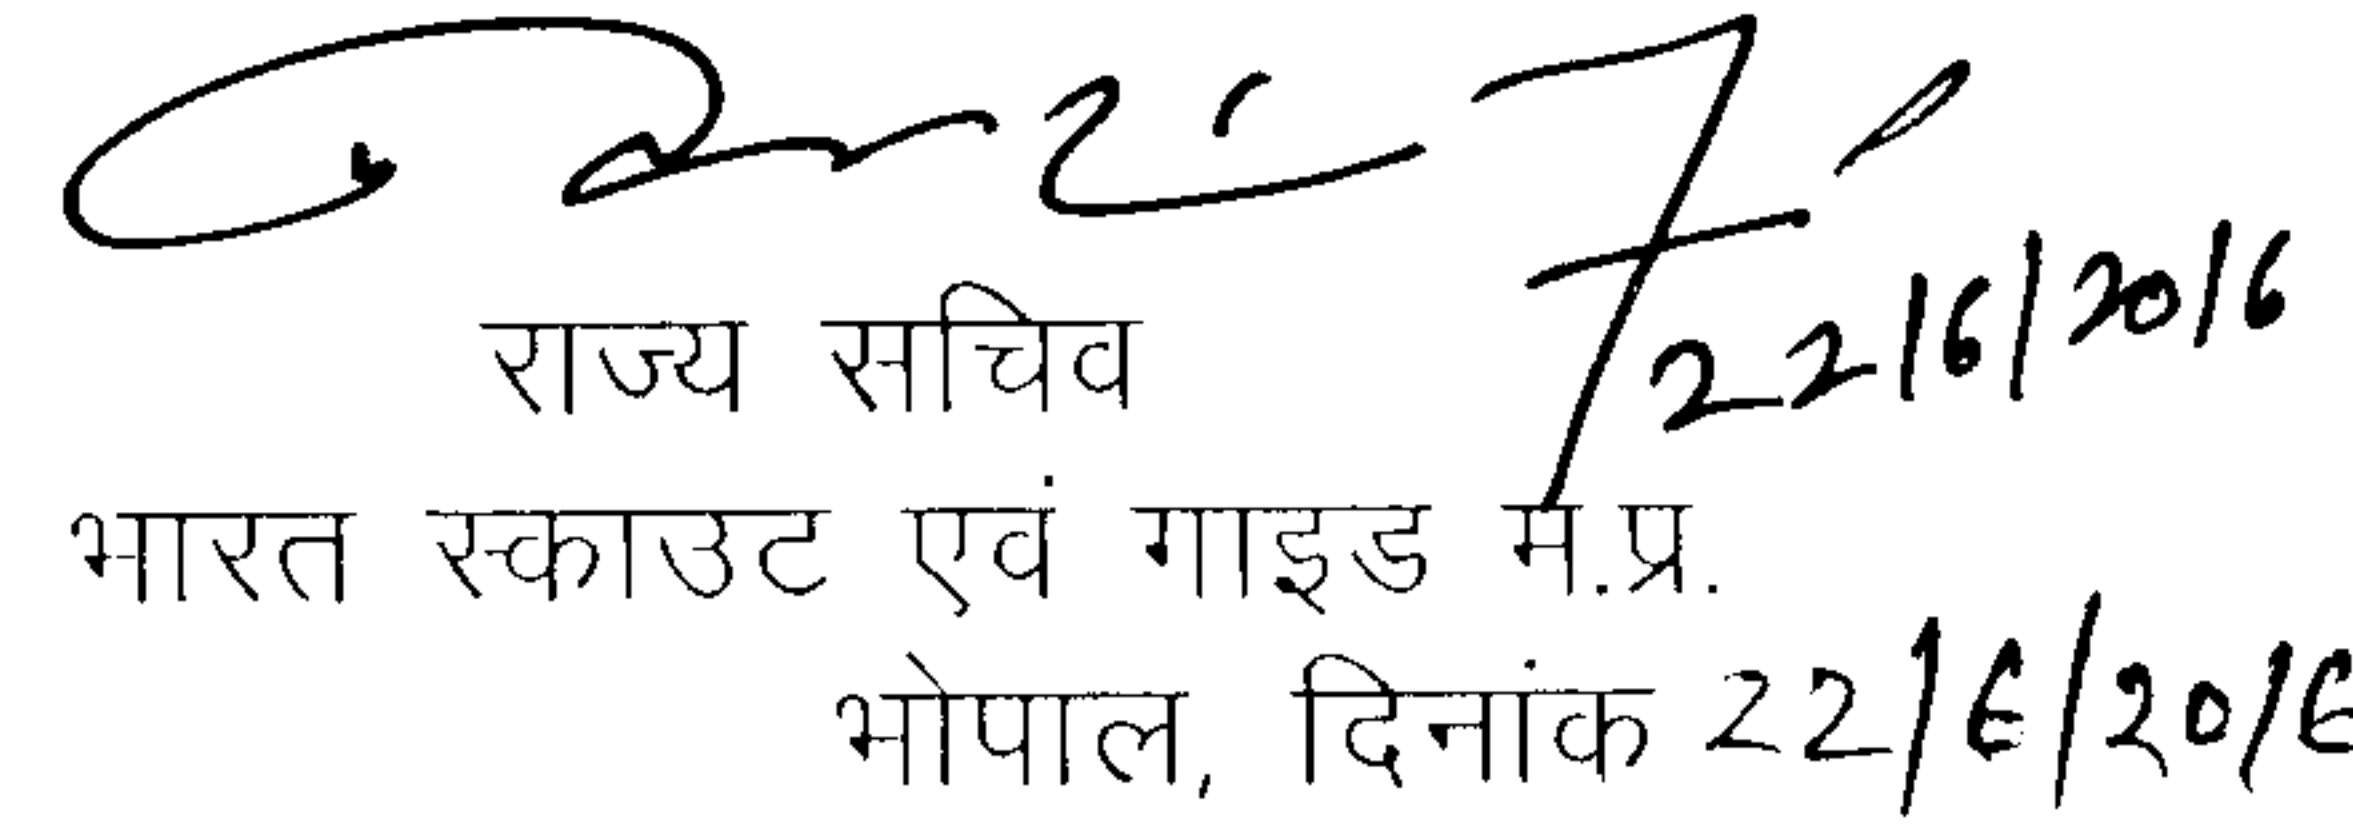 22/6/2016
राज्य सचिव
भारत स्काउट एवं गाइड म.प्र.
भोपाल, दिनांक 22/6/2016